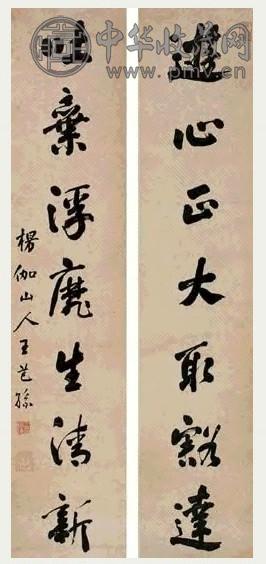 中华收藏网
www.pmv.cn
遊心正大取豁達
棄浮靡生清新
楞伽山人王芑孫